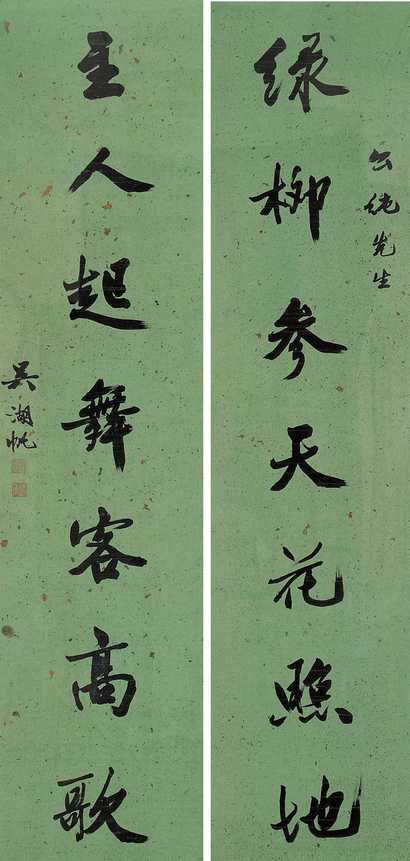 公佬先生
绿柳参天花照地
主人起舞客高歌
吴湖帆